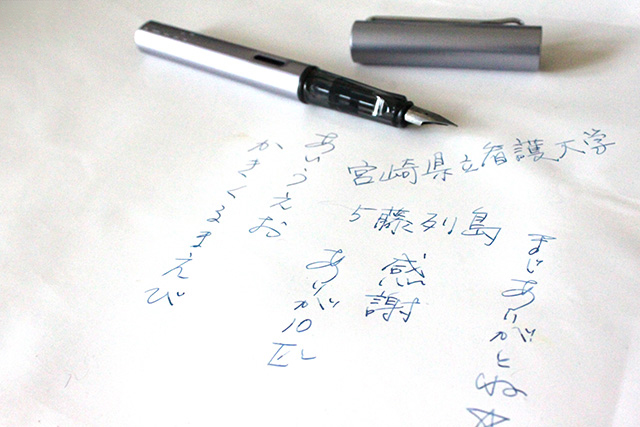 宮崎県立看護大学
5藤列島
感謝
あいうえお
かきくるまえび
ありが10
匹
まじありがとぬ
☆